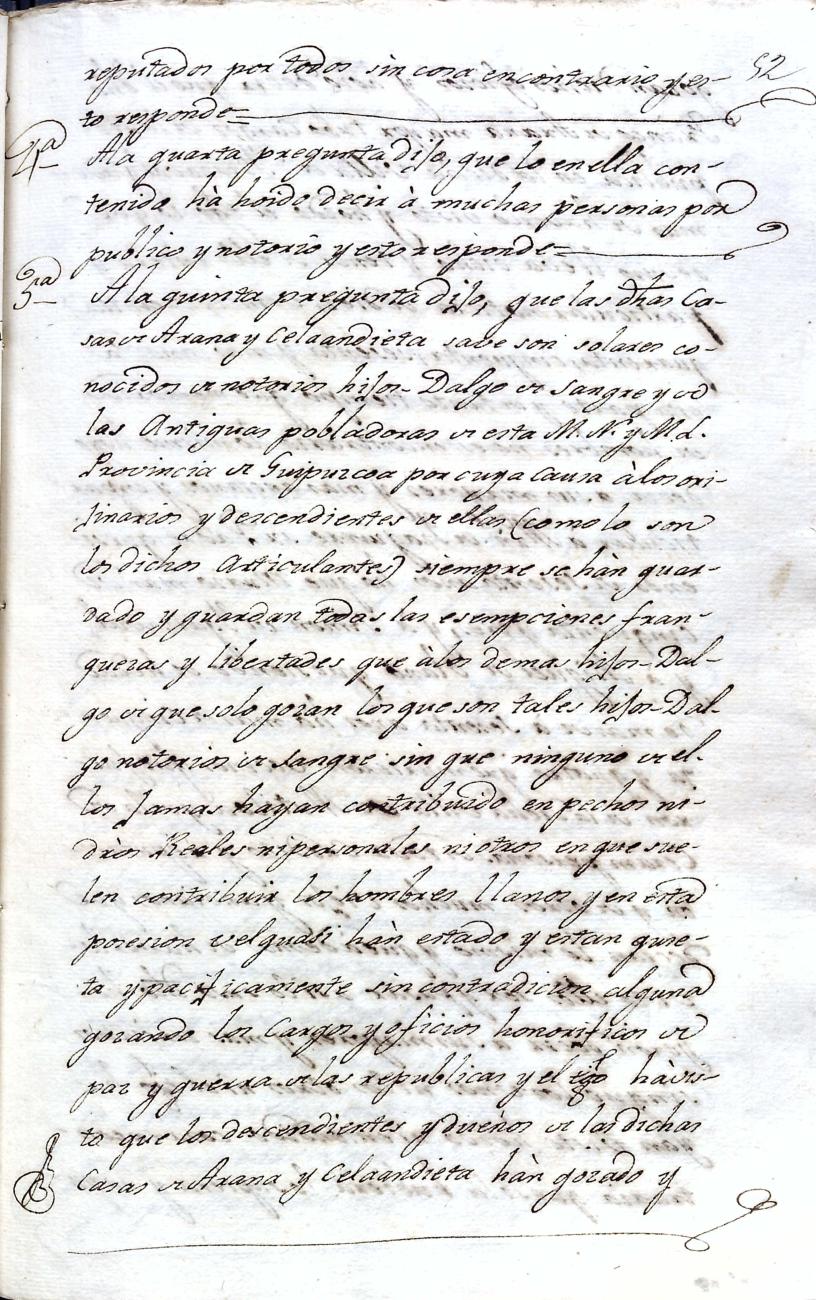 52
reputados por todos sin cosa encontrario y es-
to responde=
4a
Ala quarta pregunta dijo, que lo enella con-
tenido hà hoido decir à muchas personas por
publico y notorio y esto responde=
5a
Ala quinta pregunta dijo, que las dhas Ca-
sas de Arana y Celaandieta save son solares co-
nocidos de notorios hijos-Dalgo de sangre y de
las Antiguas pobladoras de esta M. N. y M. L.
Provincia de Guipuzcoa por cuya causa à los ori-
jinarios y descendientes de ellas (como lo son
los dichos Articulantes) siempre se hàn guar-
dado y guardan todas las esempciones fran-
quezas y libertades que àlos demas hijos-Dal-
go de que solo gozan los que son tales hijos-Dal-
go notorios de sangre sin que ninguno de el-
los Jamas hayan contribuido en pechos ni-
dròs Reales nipersonales niotros enque sue-
len contribuir los hombres llanos y en esta
posesion velquasi hàn estado y estan quie-
ta ypacificamente sin contradicion alguna
gozando los Cargos y oficios honorificos de
paz y guerra de las republicas y el tgo hà vis-
to que los descendientes y dueños de las dichas
Casas de Arana y Celaandieta hàn gozado y